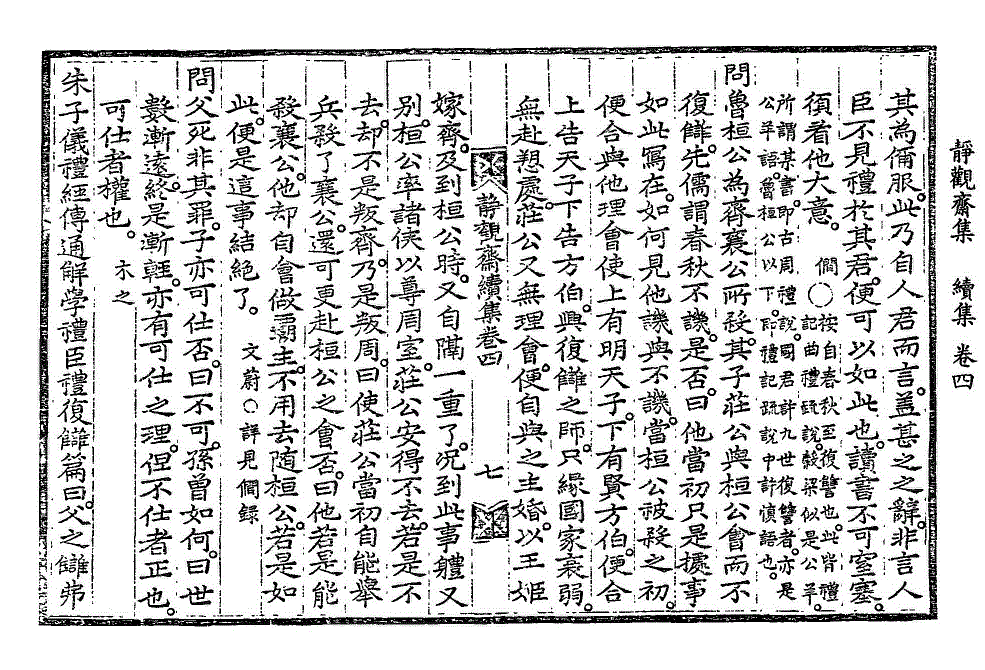 靜觀齋集　續集　卷四
其為備服此乃自人君而言蓋甚之之辭非言人
臣不見禮於其君便可以如此也讀書不可窒塞
須看他大意 僩○按自春秋至復讐也此皆禮記曲禮疏說穀梁似是公羊
所謂某書即古周禮說國君許九世復讐者亦是公羊語魯桓公以下記禮記疏說中許愼語也
問魯桓公為齊襄公所殺其子莊公與桓公會而不
復讎先儒謂春秋不譏是否曰他當初只是據事
如此寫在如何見他譏與不譏當桓公被殺之初
便合與他理會使上有明天子下有賢方伯便合
上告天子下告方伯興復讎之師只緣國家衰弱
無赴愬處莊公又無理會便自與之主婚以王姬
靜觀齋續集卷四　七
嫁齊及到桓公時又自隔一重了況到此事體又
別桓公率諸侯以尊周室莊公安得不去若是不
去却不是叛齊乃是叛周曰使莊公當初自能舉
兵殺了襄公還可更赴桓公之會否曰他若是能
殺襄公他却自會做霸主不用去隨桓公若是如
此便是這事結絕了 文蔚○詳見僩錄
問父死非其罪子亦可仕否曰不可孫曾如何曰世
數漸遠終是漸輕亦有可仕之理但不仕者正也
可仕者權也 木之
朱子儀禮經傳通解學禮臣禮復讎篇曰父之讎弗